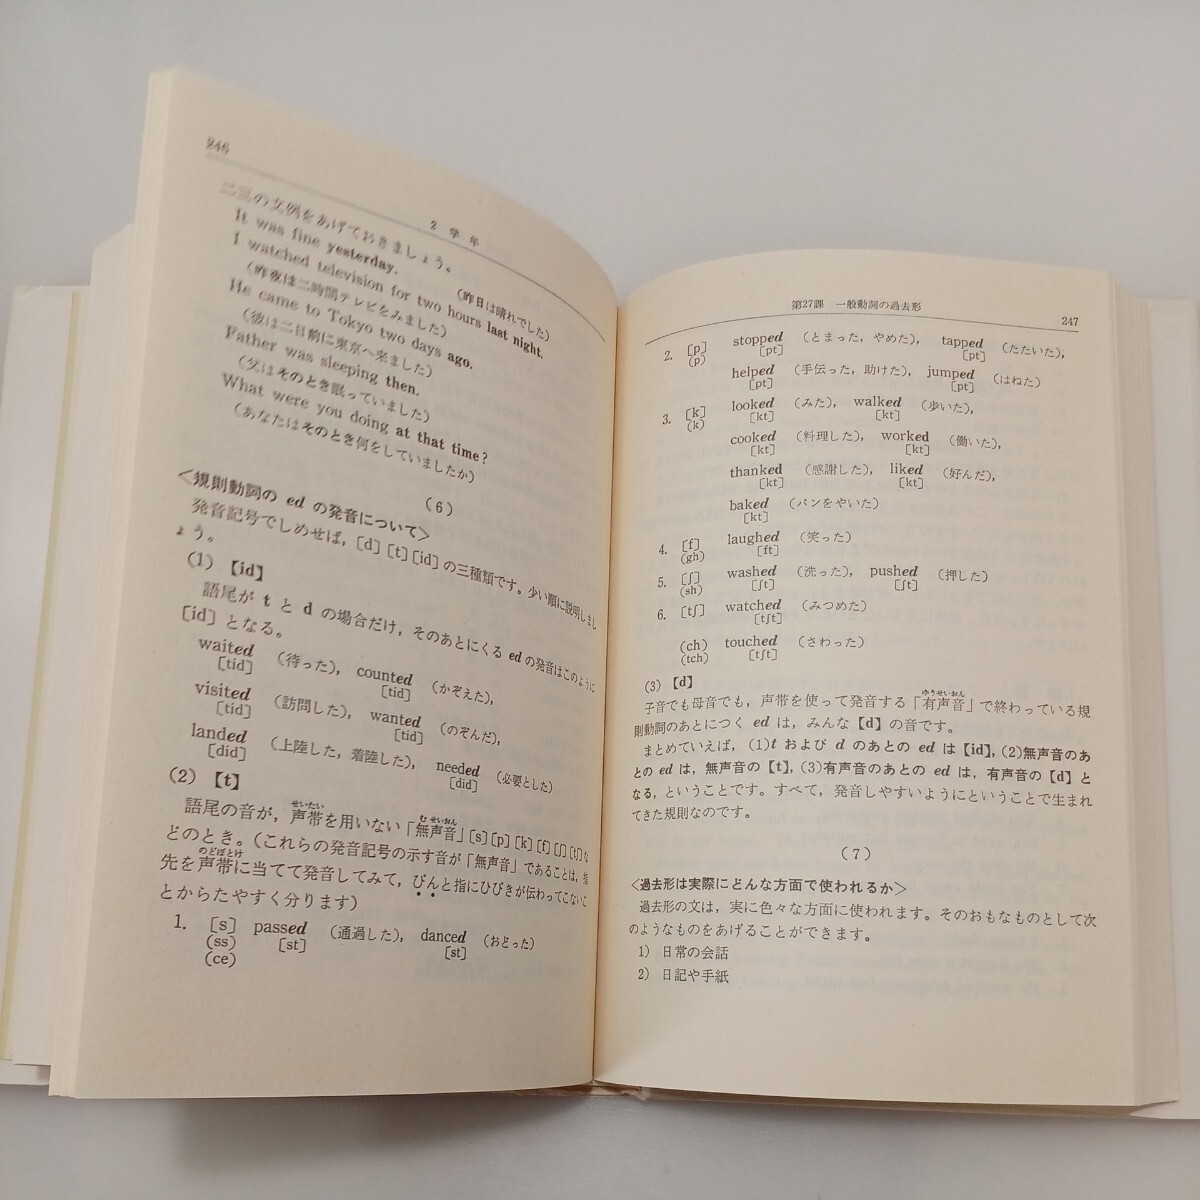 246
2 学年
二三の文例をあげておきましょう。
It was fine yesterday.
(昨日は晴れでした)
I watched television for two hours last night.
(昨夜は二時間テレビをみました)
He came to Tokyo two days ago.
(彼は二日前に東京へ来ました)
Father was sleeping then.
(父はそのとき眠っていました)
What were you doing at that time?
(あなたはそのとき何をしていましたか)
(6)
<規則動詞の ed の発音について>
発音記号でしめせば,[d][t][id]の三種類です。少い順に説明しまし
ょう。
(1)【id】
語尾が t と d の場合だけ,そのあとにくる ed の発音はこのように
[id]となる。
waited (待った), counted (かぞえた),
[tid] [tid]
visited (訪問した), wanted (のぞんだ),
[tid] [tid]
landed (上陸した,着陸した), needed (必要とした)
[did] [did]
(2)【t】
せいたい むせいおん
語尾の音が,声帯を用いない「無声音」[s][p][k][f][ʃ][tʃ]な
どのとき。(これらの発音記号の示す音が「無声音」であることは,指
のどぼとけ
先を声帯に当てて発音してみて,ぴんと指にひびきが伝わってこないこ
とからたやすく分ります)
1. [s] passed (通過した), danced (おどった)
(ss) [st] [st]
(ce)
第27課 一般動詞の過去形
247
2. [p] stopped (とまった,やめた), tapped (たたいた),
(p) [pt] [pt]
helped (手伝った,助けた), jumped (はねた)
[pt] [pt]
3. [k] looked (みた), walked (歩いた),
(k) [kt] [kt]
cooked (料理した), worked (働いた),
[kt] [kt]
thanked (感謝した), liked (好んだ),
[kt] [kt]
baked (パンをやいた)
[kt]
4. [f] laughed (笑った)
(gh) [ft]
5. [ʃ] washed (洗った), pushed (押した)
(sh) [ʃt] [ʃt]
6. [tʃ] watched (みつめた)
[tʃt]
(ch) touched (さわった)
(tch) [tʃt]
(3)【d】
ゆうせいおん
子音でも母音でも,声帯を使って発音する「有声音」で終わっている規
則動詞のあとにつく ed は,みんな【d】の音です。
まとめていえば,(1)t および d のあとの ed は【id】,(2)無声音のあ
との ed は,無声音の【t】,(3)有声音のあとの ed は,有声音の【d】と
なる,ということです。すべて,発音しやすいようにということで生まれ
てきた規則なのです。
(7)
<過去形は実際にどんな方面で使われるか>
過去形の文は,実に色々な方面に使われます。そのおもなものとして次
のようなものをあげることができます。
1) 日常の会話
2) 日記や手紙